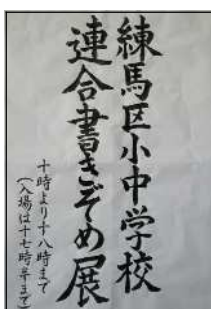 練馬区小中学校
連合書きぞめ展
十時より十八時まで
(入場は十七時半まで)